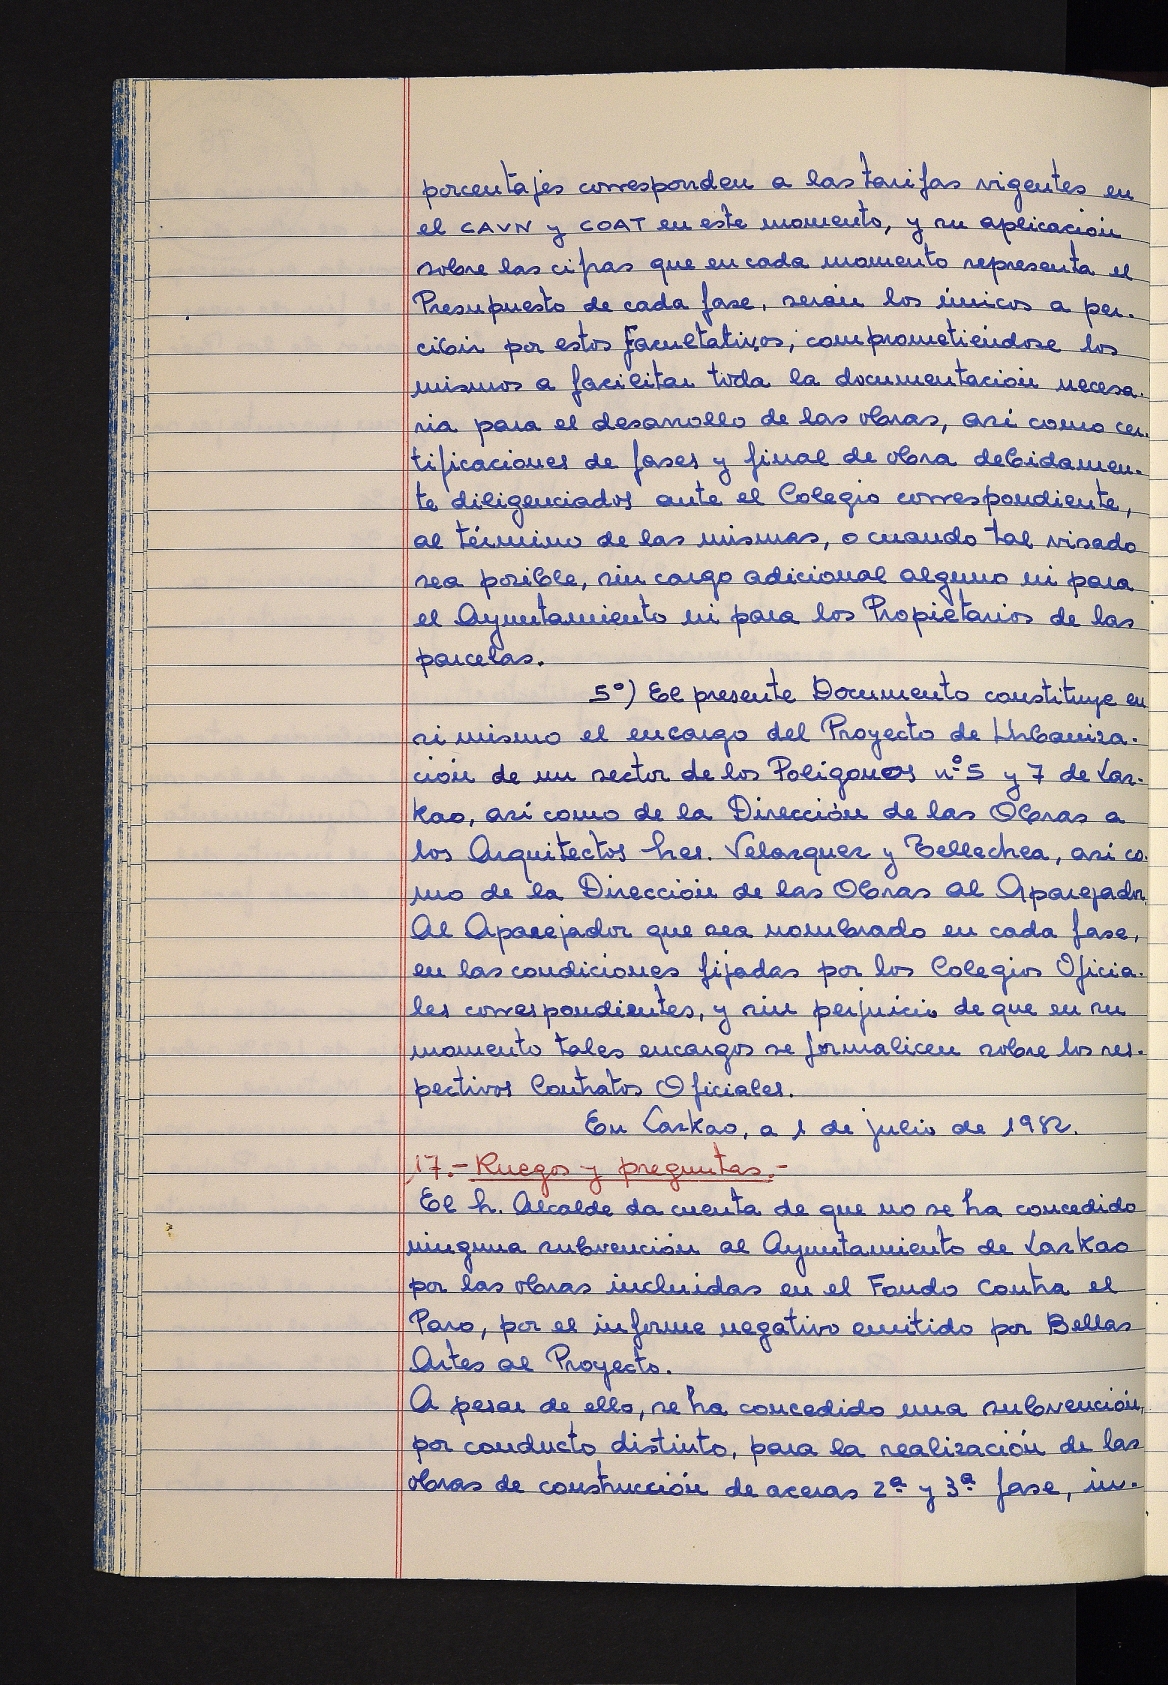 porcentajes corresponden a las tarifas vigentes en
el CAVN y COAT en este momento, y su aplicación
sobre las cifras que en cada momento representa el
Presupuesto de cada fase, serán los únicos a per-
cibir por estos Facultativos, comprometiéndose los
mismos a facilitar toda la documentación necesa-
ria para el desarrollo de las obras, así como cer-
tificaciones de fases y final de obra debidamen-
te diligenciados ante el Colegio correspondiente,
al término de las mismas, o cuando tal visado
sea posible, sin cargo adicional alguno ni para
el Ayuntamiento ni para los Propietarios de las
parcelas.
5º) El presente Documento constituye en
si mismo el encargo del Proyecto de Urbaniza-
ción de un sector de los Poligonos nº 5 y 7 de Laz-
kao, así como de la Dirección de las Obras a
los Arquitectos Sres. Velazquez y Tellechea, así co-
mo de la Dirección de las Obras al Aparejador
Al Aparejador que sea nombrado en cada fase,
en las condiciones fijadas por los Colegios Oficia-
les correspondientes, y sin perjuicio de que en su
momento tales encargos se formalicen sobre los res-
pectivos Contratos Oficiales.
En Lazkao, a 1 de julio de 1982.
17.- Ruegos y preguntas.-
El S. Alcalde da cuenta de que no se ha concedido
ninguna subvención al Ayuntamiento de Lazkao
por las obras incluidas en el Fondo Contra el
Paro, por el informe negativo emitido por Bellas
Artes al Proyecto.
A pesar de ello, se ha concedido una subvención,
por conducto distinto, para la realización de las
obras de construcción de aceras 2ª y 3ª fase, in-